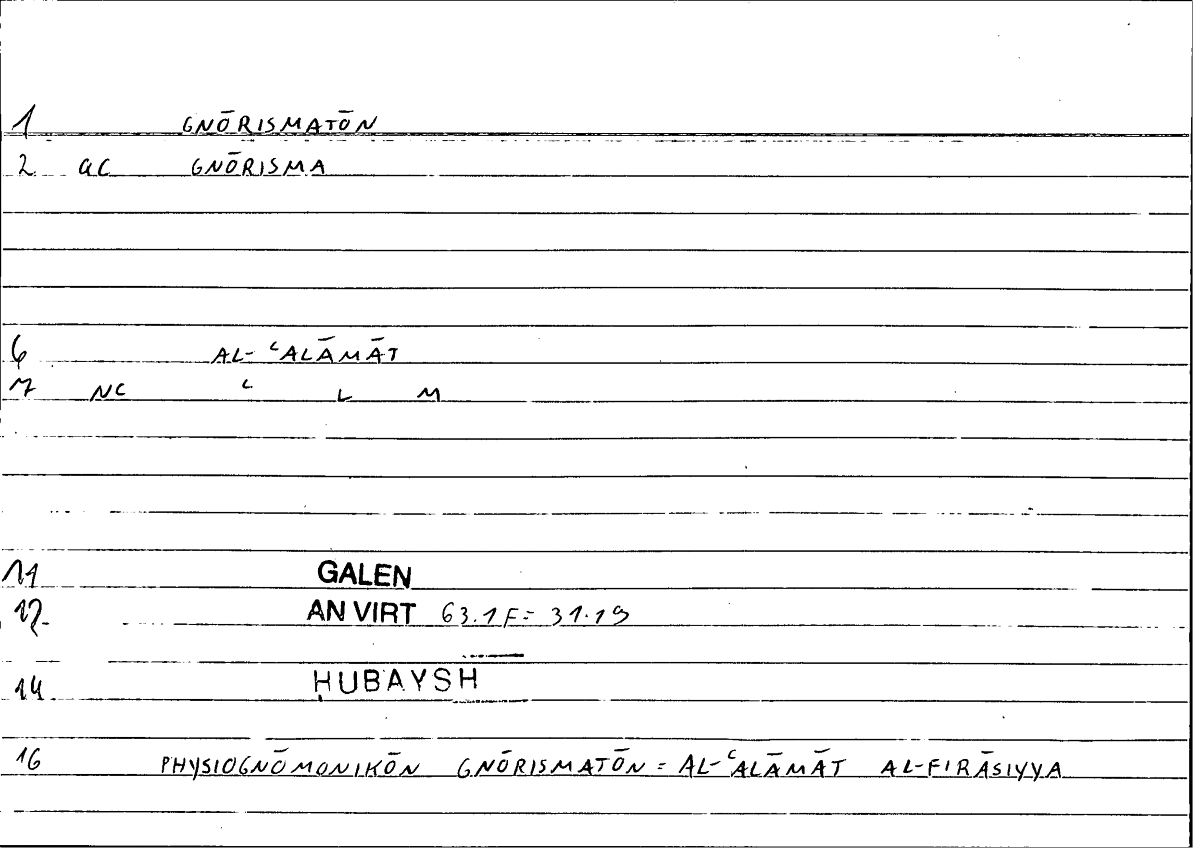 1 GNŌRISMATŌN
2 GC GNŌRISMA
6 AL-ʿALĀMĀT
7 NC ʿ L M
11 GALEN
12 AN VIRT 63.1F = 31.19
14 ḤUBAYSH
16 PHYSIOGNŌMONIKŌN GNŌRISMATŌN = AL-ʿALĀMĀT AL-FIRĀSIYYA